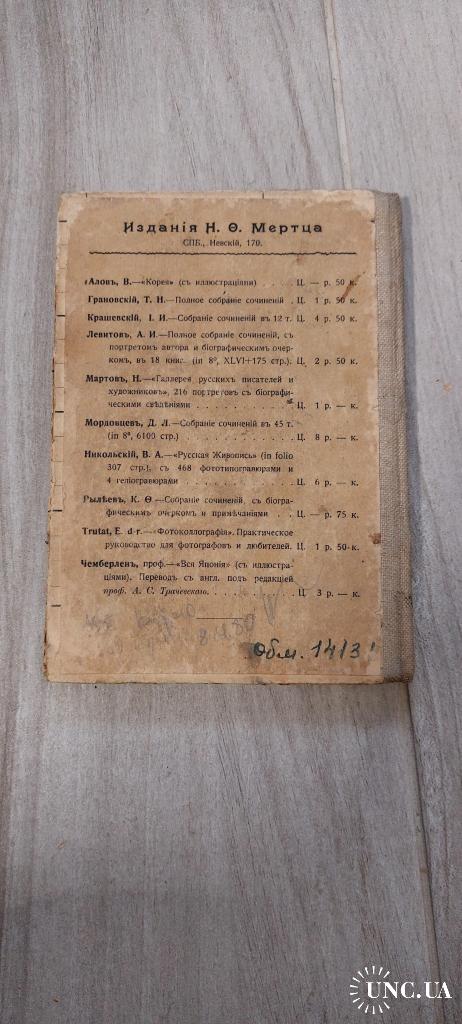 Изданія Н. Ѳ. Мертца
СПБ., Невскій, 170.
Аловъ, В.—«Корея» (съ иллюстраціями) . . . . Ц. — р. 50 к.
Грановскій, Т. Н.—Полное собраніе сочиненій . Ц. 1 р. 50 к.
Крашевскій, І. И.—Собраніе сочиненій въ 12 т. Ц. 4 р. 50 к.
Левитовъ, А. И.—Полное собраніе сочиненій, съ
портретомъ автора и біографическимъ очер-
комъ, въ 18 книг. (in 8⁰, XLVI+175 стр.). Ц. 2 р. 50 к.
Мартовъ, Н.—«Галлерея русскихъ писателей и
художниковъ», 216 портретовъ съ біографи-
ческими свѣдѣніями . . . . . . . . . . Ц. 1 р. — к.
Мордовцевъ, Д. Л.—Собраніе сочиненій въ 45 т.
(in 8⁰, 6100 стр.) . . . . . . . . . . . Ц. 8 р. — к.
Никольскій, В. А.—«Русская Живопись» (in folio
307 стр.), съ 468 фототипогравюрами и
4 геліогравюрами . . . . . . . . . . . Ц. 6 р. — к.
Рылѣевъ, К. Ѳ—Собраніе сочиненій, съ біогра-
фическимъ очеркомъ и примѣчаніями . . Ц. — р. 75 к.
Trutat, E. d-r.—«Фотоколлографія». Практическое
руководство для фотографовъ и любителей. Ц. 1 р. 50 к.
Чемберленъ, проф.—«Вся Японія» (съ иллюстра-
ціями). Переводъ съ англ. подъ редакціей
проф. А. С. Трачевскаго. . . . . . . . . Ц 3 р. — к.
Обм. 1413
UNC.UA